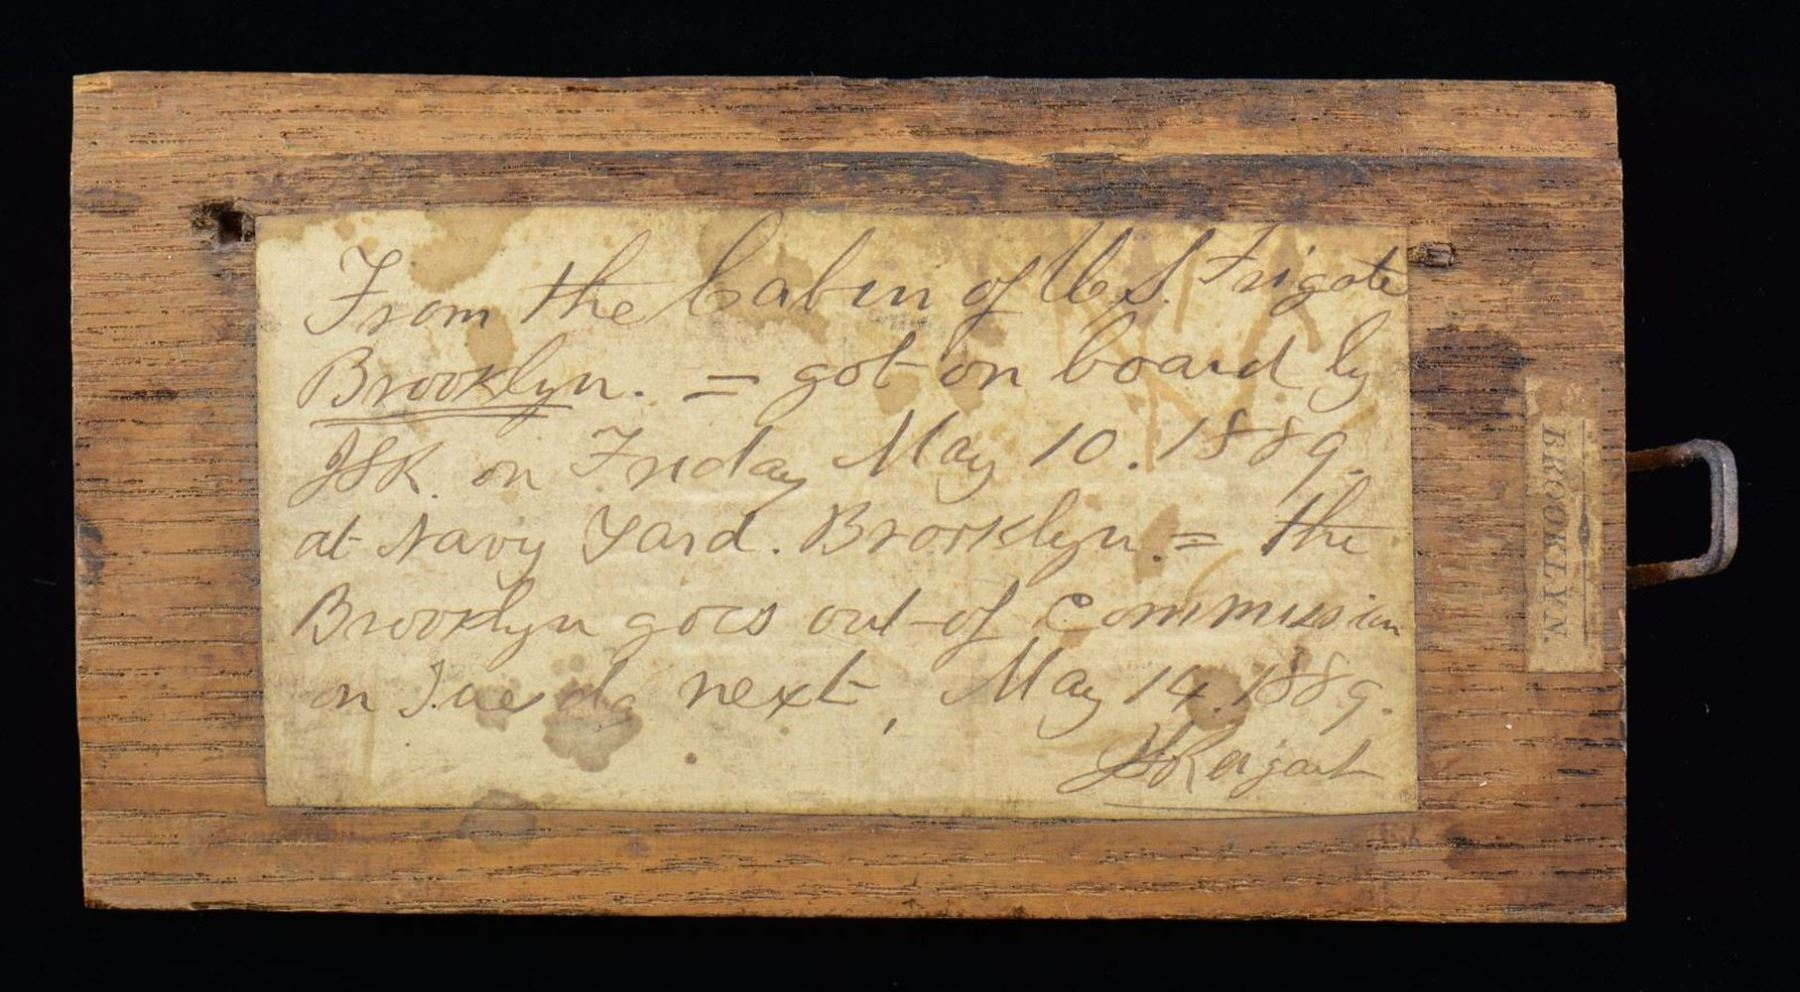 From the Cabin of U.S. Frigate
Brooklyn. = got on board by
JSR. on Friday May 10. 1889.
at Navy Yard. Brooklyn. = the
Brooklyn goes out of Commission
on Tuesda next, May 14. 1889.
JSReigart
BROOKLYN.